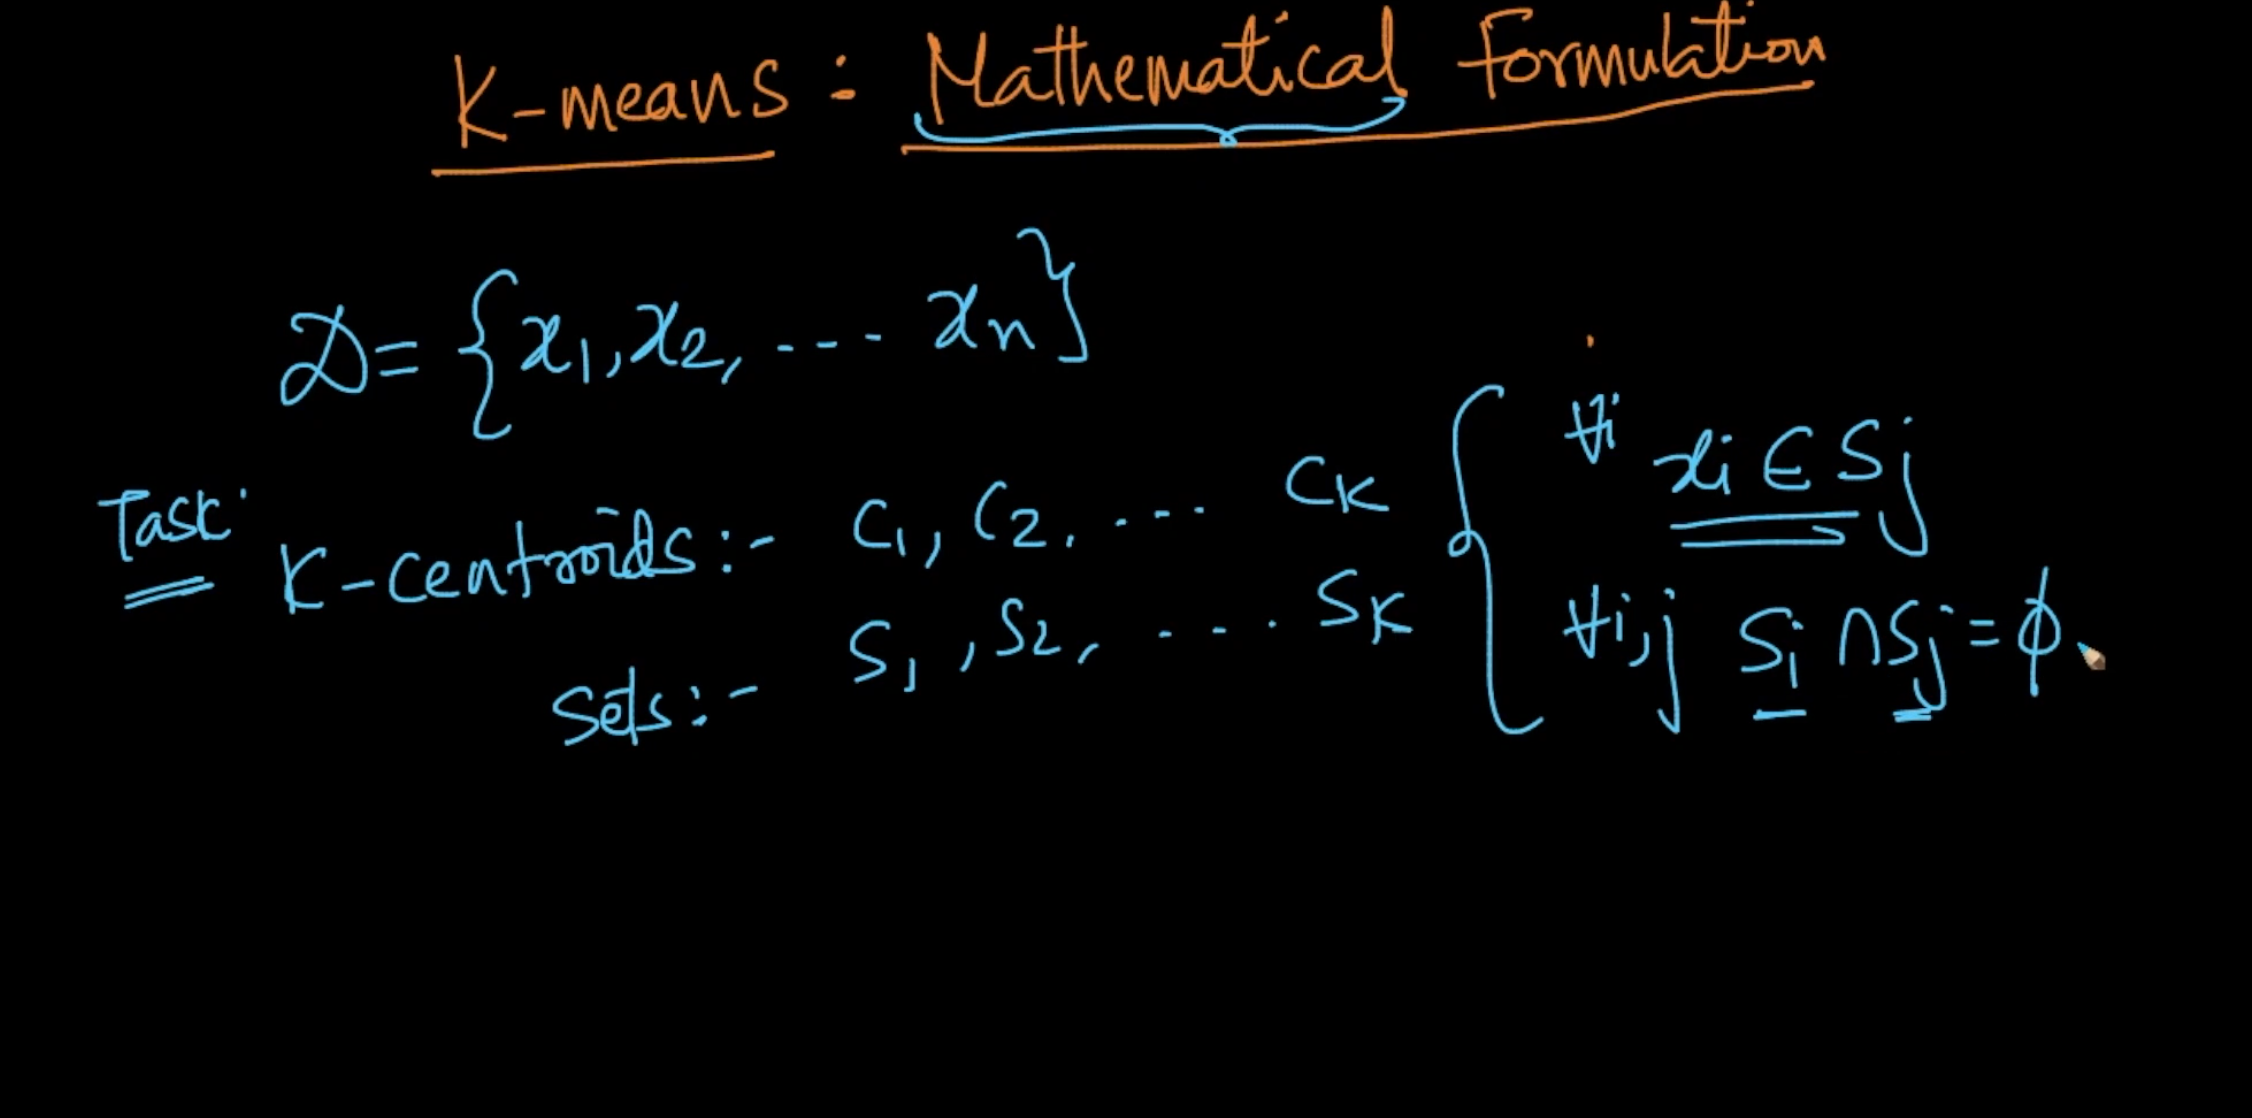 K-means : Mathematical Formulation
D = {x1, x2, --- xn}
Task: K-centroids:- C1, C2, ... CK
Sets:- S1, S2, ... SK
∀i xi ∈ Sj
∀i,j Si ∩ Sj = ϕ